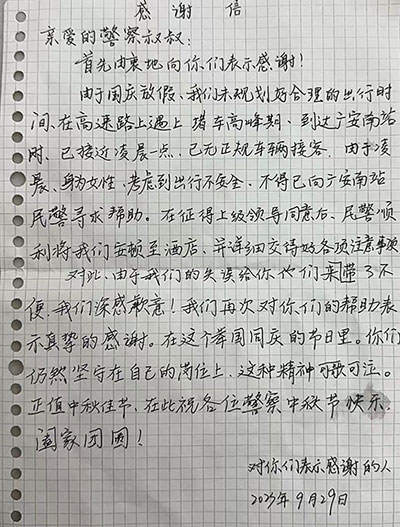 感谢信
亲爱的警察叔叔:
首先由衷地向你们表示感谢!
由于国庆放假、我们未规划好合理的出行时
间、在高速路上遇上堵车高峰期、到达广安南站
时、已接近凌晨一点、已无正规车辆接客. 由于凌
晨、身为女性、考虑到出行不安全、不得已向广安南站
民警寻求帮助。在征得上级领导同意后、民警顺
利将我们安顿至酒店、并详细交待好各项注意事项
对此、由于我们的失误给你他们来带了不
便、我们深感歉意!我们再次对你们的帮助表
示真挚的感谢。在这个举国同庆的节日里。你们
仍然坚守在自己的岗位上、这种精神可歌可泣。
正值中秋佳节、在此祝各位警察中秋节快乐、
阖家团圆!
对你们表示感谢的人
2023年9月29日